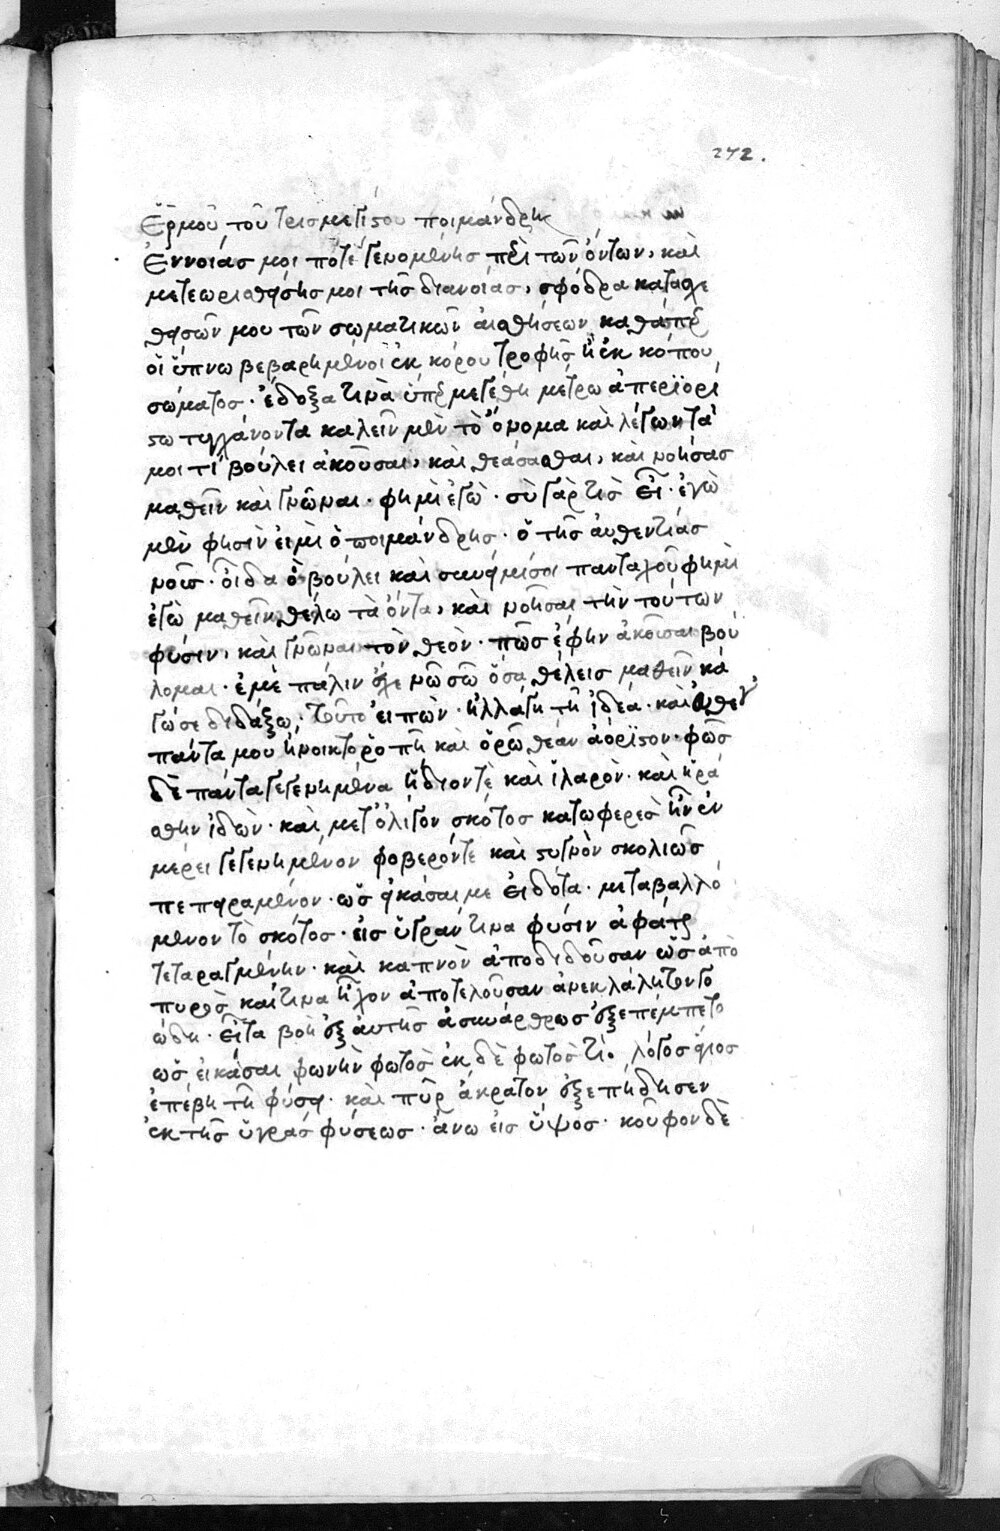 272.
Ἑρμοῦ τοῦ τρισμεγίστου ποιμάνδρης
Ἐννοίας μοι ποτὲ γενομένης περὶ τῶν ὄντων, καὶ
μετεωρισθείσης μοι τῆς διανοίας, σφόδρα κατασχε
θεισῶν μου τῶν σωματικῶν αἰσθήσεων καθάπερ
οἱ ὕπνω βεβαρημένοι ἐκ κόρου τροφῆς ἢ ἐκ κόπου
σώματος· ἔδοξα τινὰ ὑπερμεγέθη μέτρω ἀπεριορί
στω τυγχάνοντα καλεῖν μὲν τὸ ὄνομα καὶ λέγωντά
μοι τί βούλει ἀκοῦσαι, καὶ θεάσασθαι, καὶ νοήσας
μαθεῖν καὶ γνῶναι· φημὶ ἐγὼ· σὺ γὰρ τίς εἶ· ἐγὼ
μὲν φησὶν εἰμὶ ὁ ποιμάνδρης· ὁ τῆς αὐθεντίας
νοῦς· οἶδα ὃ βούλει καὶ σύνειμί σοι πανταχοῦ φημὶ
ἐγὼ μαθεῖν θέλω τὰ ὄντα, καὶ νοῆσαι τὴν τούτων
φύσιν, καὶ γνῶναι τὸν θεὸν· πῶς ἔφην ἀκοῦσαι βού
λομαι· ἐμὲ πάλιν ἔχε νῶ σῶ ὅσα θέλεις μαθεῖν κἀ
γώ σε διδάξω· τοῦτο εἰπὼν· ἠλλάγη τῆ ἰδέα· καὶ εὐθέως
πάντα μου ἤνοικτο ῥοπῆ καὶ ὁρῶ θέαν ἀόριστον· φῶς
δὲ πάντα γεγενημένα ἥδιον τὲ καὶ ἱλαρὸν· καὶ ἠρά
σθην ἰδὼν· καὶ μετ' ὀλίγον σκότος κατωφερὲς ἦν ἐν
μέρει γεγενημένον φοβερόν τε καὶ στυγνὸν σκολιῶς
πεπειραμένον· ὡς εἰκάσαι με εἰδότα· μεταβαλλό
μενον τὸ σκότος· εἰς ὑγρὰν τινα φύσιν ἀφάτως
τεταραγμένην· καὶ καπνὸν ἀποδιδοῦσαν ὡς ἀπὸ
πυρὸς καί τινα ἦχον ἀποτελοῦσαν ἀνεκλάλητον γο
ώδη· εἶτα βοὴ ἐξ αὐτῆς ἀσυνάρθρως ἐξεπέμπετο
ὡς εἰκάσαι φωνὴν φωτὸς ἐκ δὲ φωτὸς τι· λόγος ἅγιος
ἐπέβη τῆ φύσει· καὶ πῦρ ἄκρατον ἐξεπήδησεν
ἐκ τῆς ὑγρᾶς φύσεως· ἄνω εἰς ὕψος· κοῦφον δὲ